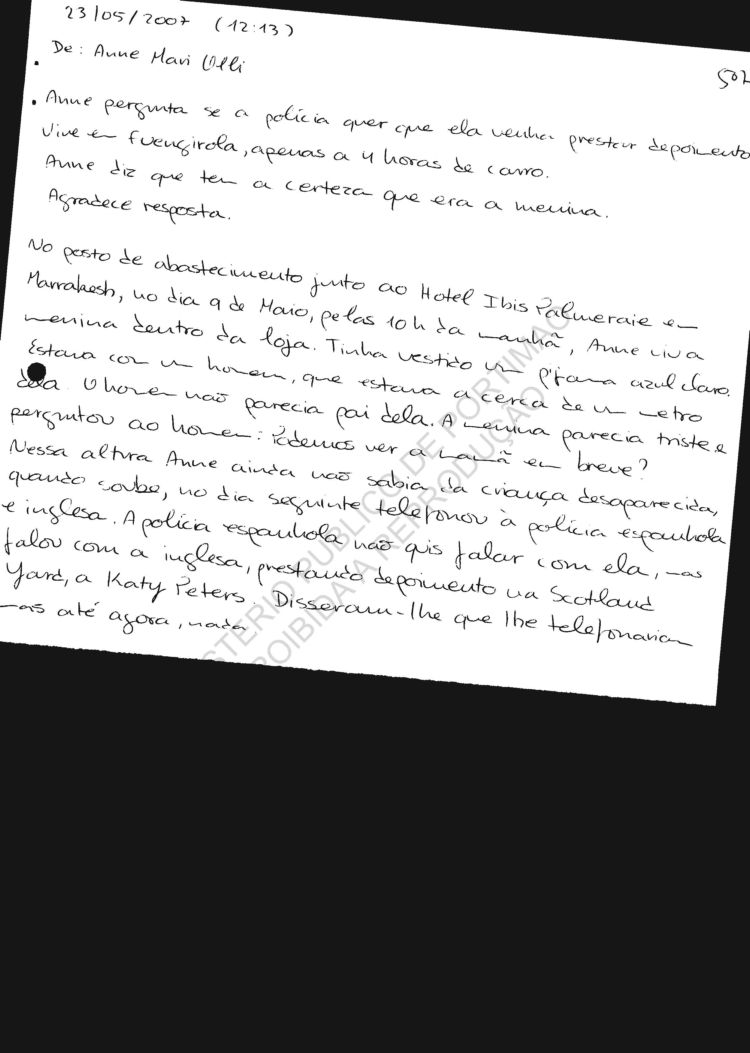 23/05/2007 (12:13)
502
De: Anne Mari Olli
. Anne pergunta se a polícia quer que ela venha prestar depoimento
Vive em Fuengirola, apenas a 4 horas de carro.
Anne diz que tem a certeza que era a menina.
Agradece resposta.
No posto de abastecimento junto ao Hotel Ibis Palmeraie em
Marrakesh, no dia 9 de Maio, pelas 10h da manhã, Anne viu a
menina dentro da loja. Tinha vestido um pijama azul claro.
Estava com um homem, que estava a cerca de um metro
dela. O homem não parecia pai dela. A menina parecia triste e
perguntou ao homem: Podemos ver a mamã em breve?
Nessa altura Anne ainda não sabia da criança desaparecida,
quando soube, no dia seguinte telefonou à polícia espanhola
e inglesa. A polícia espanhola não quis falar com ela, mas
falou com a inglesa, prestando depoimento na Scotland
Yard, a Katy Peters. Disseram-lhe que lhe telefonariam
mas até agora, nada
MINISTERIO PUBLICO DE PORTIMAO
PROIBIDA A REPRODUÇÃO